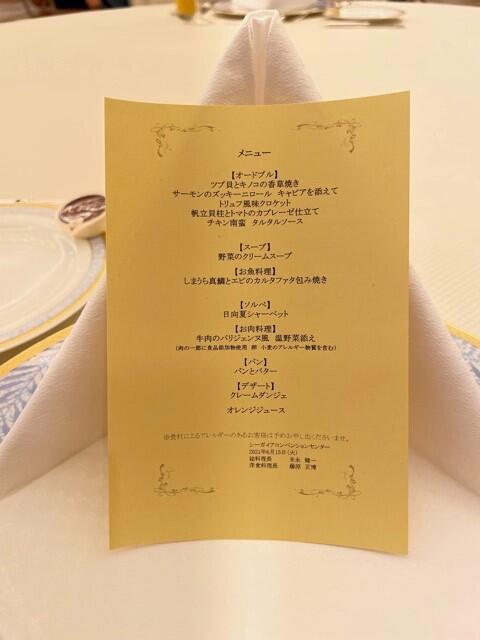 メニュー
【オードブル】
ツブ貝とキノコの香草焼き
サーモンのズッキーニロール キャビアを添えて
トリュフ風味クロケット
帆立貝柱とトマトのカプレーゼ仕立て
チキン南蛮 タルタルソース
【スープ】
野菜のクリームスープ
【お魚料理】
しまうら真鯛とエビのカルタファタ包み焼き
【ソルベ】
日向夏シャーベット
【お肉料理】
牛肉のパリジェンヌ風 温野菜添え
(肉の一部に食品添加物使用 卵 小麦のアレルギー物質を含む)
【パン】
パンとバター
【デザート】
クレームダンジェ
オレンジジュース
※食材によるアレルギーのあるお客様は予めお申し出くださいませ。
シーガイアコンベンションセンター
2021年6月15日(火)
総料理長 健一
洋食料理長 藤原 正博